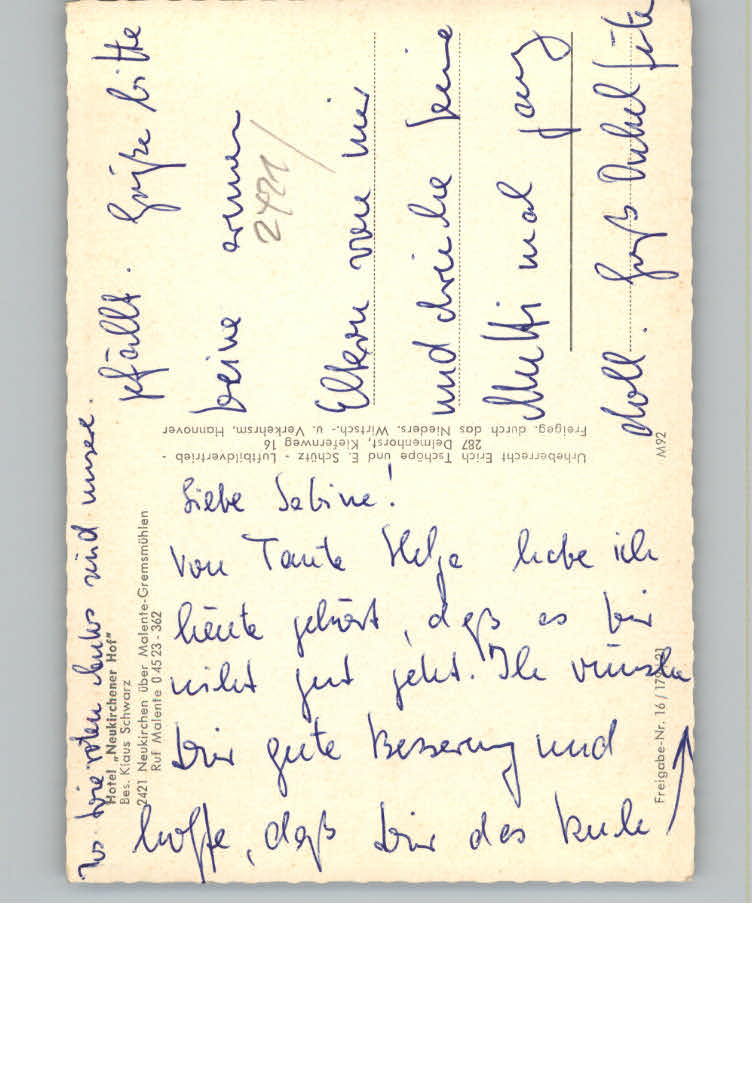 Liebe Sabine!
Von Tante Helga habe ich
heute gehört, daß es Dir
nicht gut geht. Ich wünsche
Dir gute Besserung und
hoffe, daß Dir das Buch
gefällt. Grüße bitte
Deine armen
Eltern von mir
und drücke Deine
Mutti mal ganz
doll. Gruß Onkel
Ps. Die roten Autos sind unsere.
2421/
Hotel „Neukirchener Hof"
Bes. Klaus Schwarz
2421 Neukirchen über Malente-Gremsmühlen
Ruf Malente 0 45 23 - 362
Urheberrecht Erich Tschöpe und E. Schütz - Luftbildvertrieb -
287 Delmenhorst, Kiefernweg 16
Freigeg. durch das Nieders. Wirtsch.- u. Verkehrsm. Hannover
Freigabe-Nr. 16 /
M92